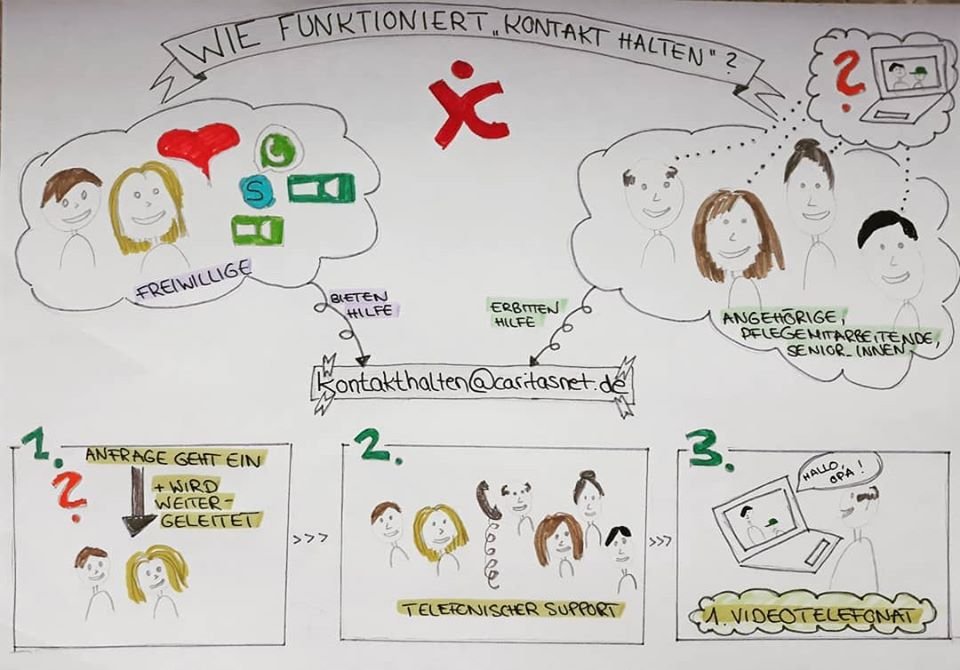 WIE FUNKTIONIERT „KONTAKT HALTEN" ?
?
S
FREIWILLIGE
BIETEN
HILFE
ERBITTEN
HILFE
ANGEHÖRIGE,
PFLEGEMITARBEITENDE,
SENIOR_INNEN
kontakthalten@caritasnet.de
1.
ANFRAGE GEHT EIN
?
+ WIRD
WEITER-
GELEITET
>>>
2.
TELEFONISCHER SUPPORT
>>>
3.
HALLO,
OPA !
1. VIDEOTELEFONAT